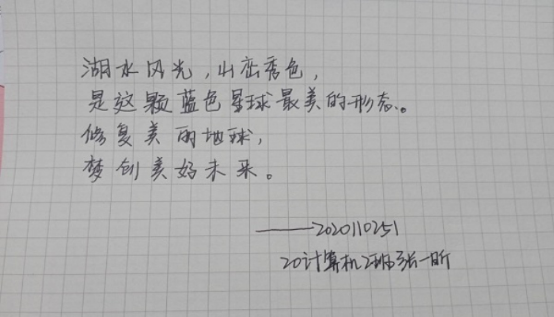 湖水风光,山峦秀色,
是这颗蓝色星球最美的形态。
修复美丽地球,
梦创美好未来。
——2020110251
20计算机2班张一昕